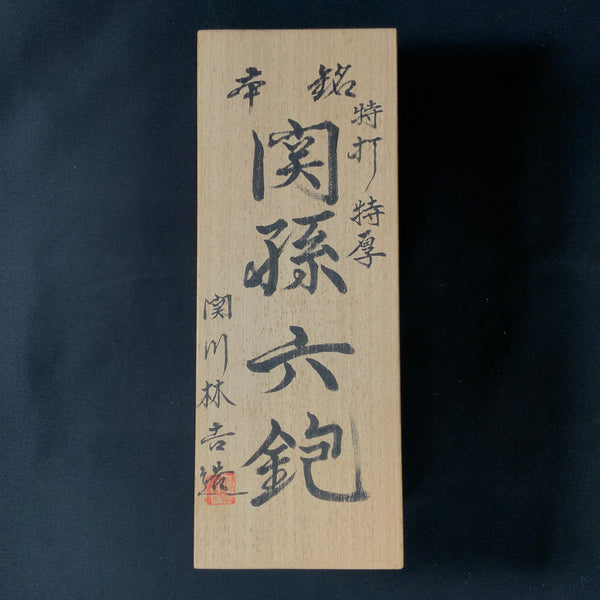 本銘
特打 特厚
関孫六鉋
関川林吉造